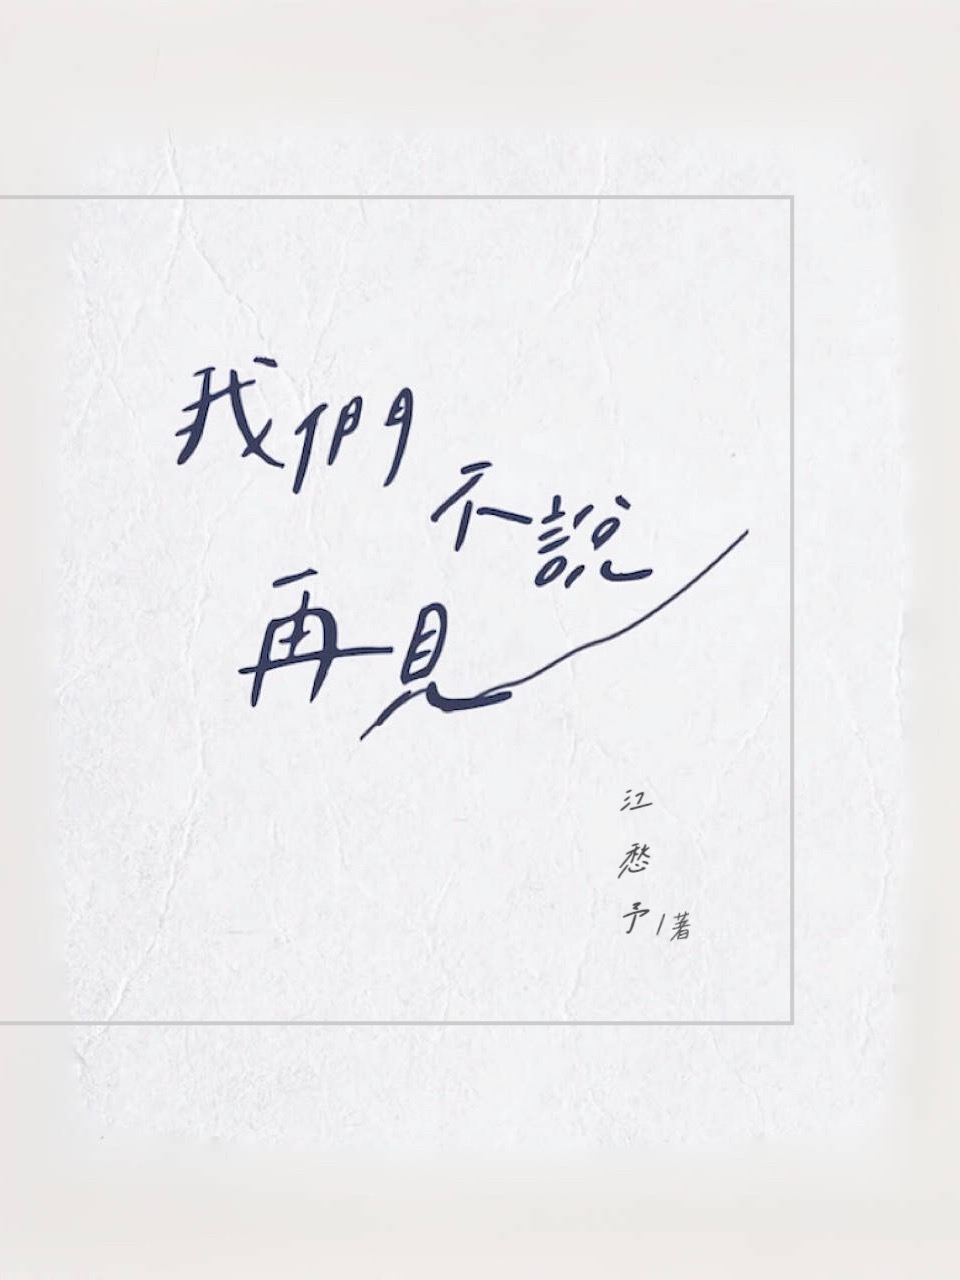 我們
不說
再見
江愁予/著